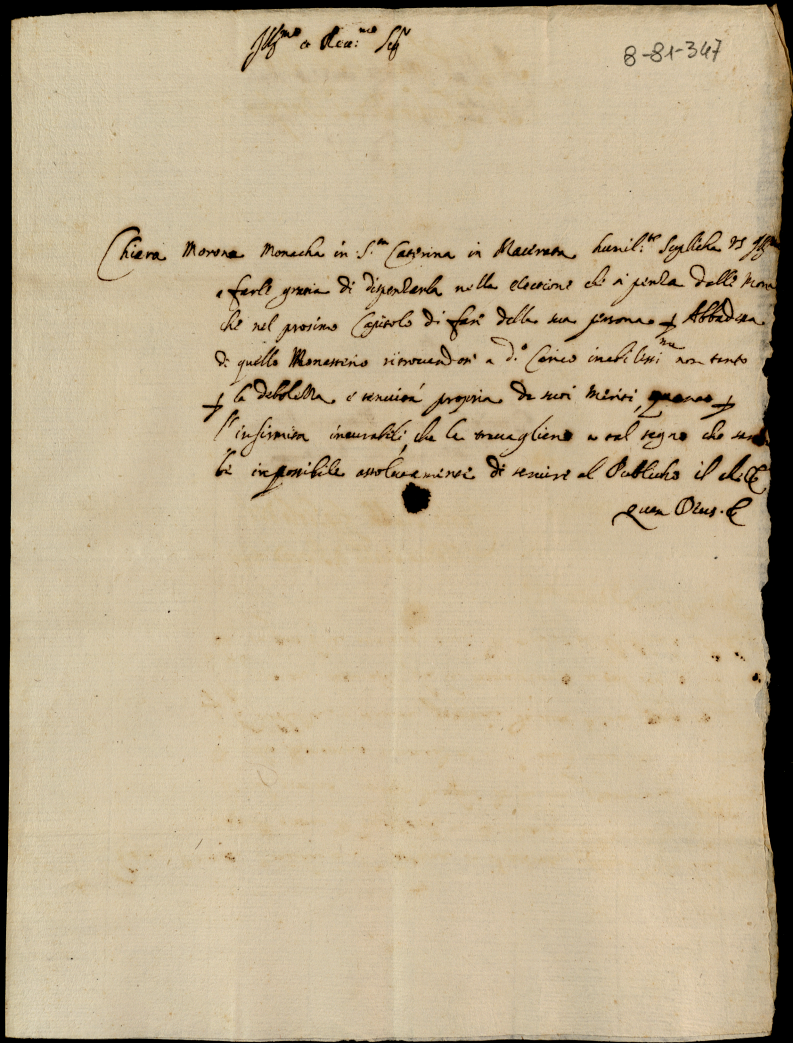 Ill.mo e Rev.mo Sig.r
8-81-347
Chiara Morona Monacha in S.ta Caterina in Macerata humil.te Suplicha VS Ill.ma
a farli gratia di dispensarla nella elecione che si pensa dalle Mona
che nel prosimo Capitolo di fare della sua persona p Abbadessa
di quello Monasterio ritrovandosi a d.o Carico inabilissi.ma non tanto
p la debolezza e tenuità propria de suoi meriti, quanto p
l'infirmità incurabili, che la travagliano a tal segno che sareb
be impossibile assolutamente di servire al Publicho il che
quam Deus.